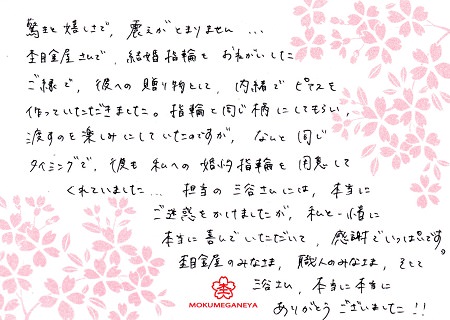 驚きと嬉しさで、震えがとまりません...
杢目金屋さんで、結婚指輪をおねがいした
ご縁で、彼への贈り物として、内緒でピアスを
作っていただきました。指輪と同じ柄にしてもらい、
渡すのを楽しみにしていたのですが、なんと同じ
タイミングで、彼も私への婚約指輪を用意して
くれていました... 担当の三谷さんには、本当に
ご迷惑をかけましたが、私と一緒に
本当に喜んでいただいて、感謝でいっぱいです。
杢目金屋のみなさま、職人のみなさま、そして
三谷さん、本当に本当に
ありがとうございました!!
MOKUMEGANEYA